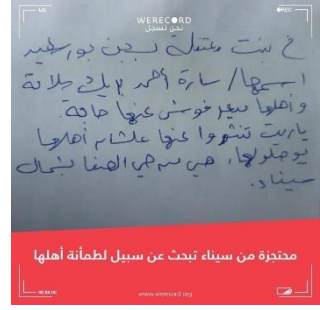 REC
WERECORD
نحن نسجل
في بنت معتقلة بسجن بورسعيد
اسمها / سارة أحمد
وأهلها ميعرفوش عنها حاجة
ياريت تنشروا عنها علشان أهلها
يوصلولها، هي من حي الصفا بشمال
سيناء.
محتجزة من سيناء تبحث عن سبيل لطمأنة أهلها
www.werecord.org